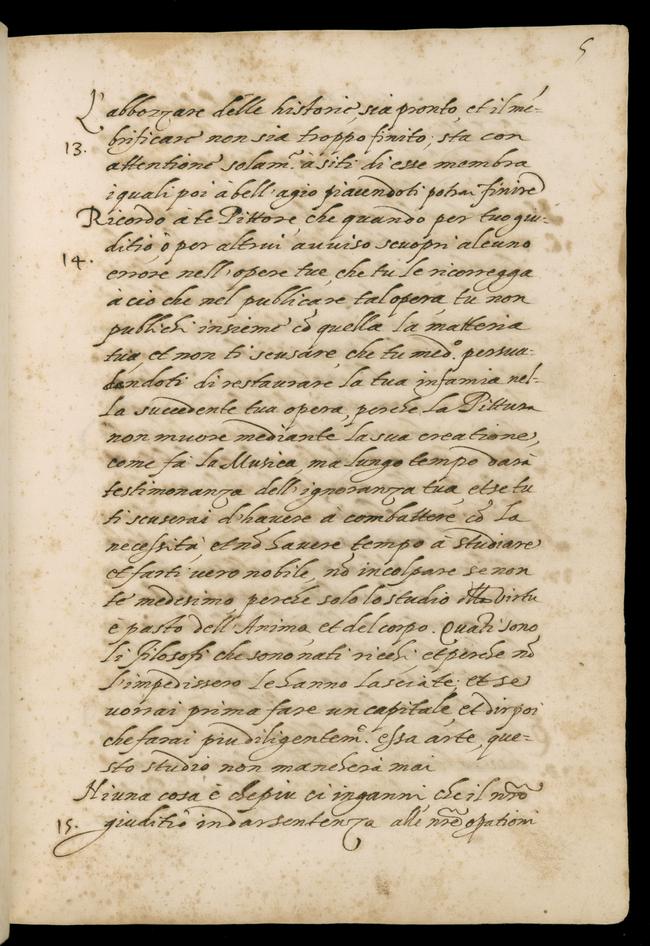 5
L'abbozzare delle historie, sia pronto, et il me-
brificare non sia troppo finito, sta con
13.
attentione solam.e à siti di esse membra
i quali poi a bell'agio piacendoti potrai finire
Ricordo a te Pittore che quando per tuo giu-
ditio ò per altrui avviso scuopri alcuno
14.
errore nell'opere tue, che tu le ricorregga
à cio che nel publicare tal opera, tu non
publichi insieme cō quella la matteria
tua, et non ti scusare, che tu med.o persua-
dendoti di restaurare la tua infamia nel-
la succedente tua opera, perche la Pittura
non muore mediante la sua creatione,
come fà la Musica, ma lungo tempo darà
testimonanza dell'ignoranza tua, et se tu
ti scuserai d'havere à combattere cō la
necessità, et nō havere tempo à studiare
et farti vero nobile, nō incolpare se non
te medesimo, perche solo lo studio della virtu
è pasto dell'Anima, et del corpo. Quāti sono
li filosofi che sono nati richi, et perche nō
l'impedissero le hanno lasciate: et se
vorrai prima fare un capitale, et dir poi
che farai piu diligentem.e essa arte, que-
sto studio non mancherà mai
Niuna cosa è che piu ci inganni che il nr̄o
15.
giuditio in dar sentenza alle nr̄e op̄ationi